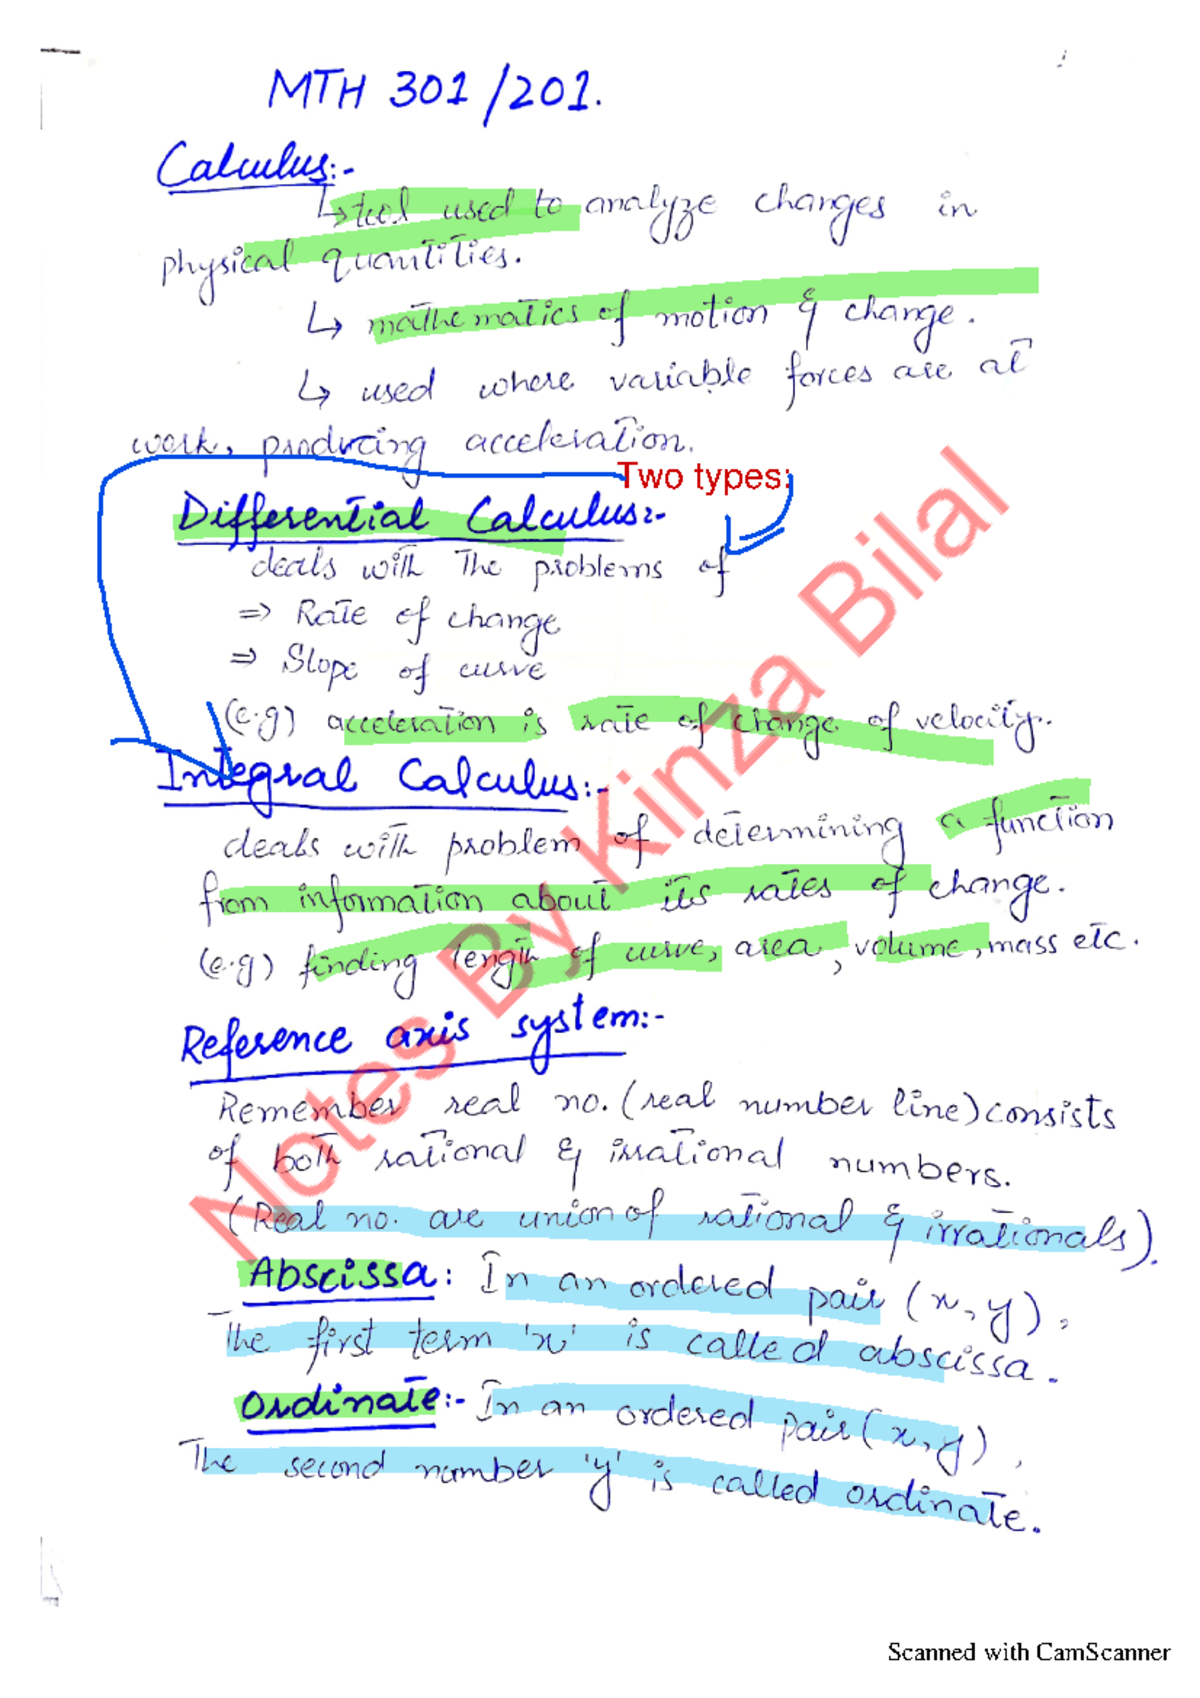 MTH 301/201.
Calculus:-
↳ tool used to analyze changes in
physical quantities.
↳ mathematics of motion & change.
↳ used where variable forces are at
work, producing acceleration.
Two types:
Differential Calculus:-
deals with The problems of
⇒ Rate of change
⇒ Slope of curve
(e.g) acceleration is rate of change of velocity.
Integral Calculus:-
deals with problem of determining a function
from information about its rates of change.
(e.g) finding length of curve, area, volume, mass etc.
Reference axis system:-
Remember real no. (real number line) consists
of both rational & irrational numbers.
(Real no. are union of rational & irrationals).
Abscissa: In an ordered pair (x, y),
The first term 'x' is called abscissa.
Ordinate:- In an ordered pair (x, y),
The second number 'y' is called ordinate.
Notes By Kinza Bilal
Scanned with CamScanner